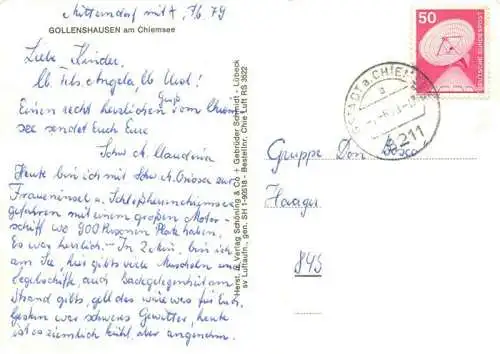 Mitterndorf mit A, 7/6 79
GOLLENSHAUSEN am Chiemsee
Liebe Kinder,
lb. Frls. Angela, lb Uwe!
Einen recht herzlichen Gruß vom Chiem
see sendet Euch Eure
Schw. M. Claudina
Heute bin ich mit Schw. M. zur
Fraueninsel u. Schloßherrenchiemsee
gefahren mit einem großen Motor-
schiff wo 900 Personen Platz haben.
Es war herrlich – In 2 Min. bin ich
am See, hier gibts viele Muscheln und
Segelschiffe, auch Badegelegenheit am
Strand gibts, gell das wäre was für Euch.
Gestern war schweres Gewitter, heute
ist es ziemlich kühl, aber angenehm.
Herst. u. Verlag Schöning & Co. + Gebrüder Schmidt - Lübeck
sv Luftaufn., gen. SH 1-90618 - Bestellnr. Chie Luft RS 3622
50
DEUTSCHE BUNDESPOST
STADT a. CHIEM
a
8211
Gruppe Don Bosco
Haager
845